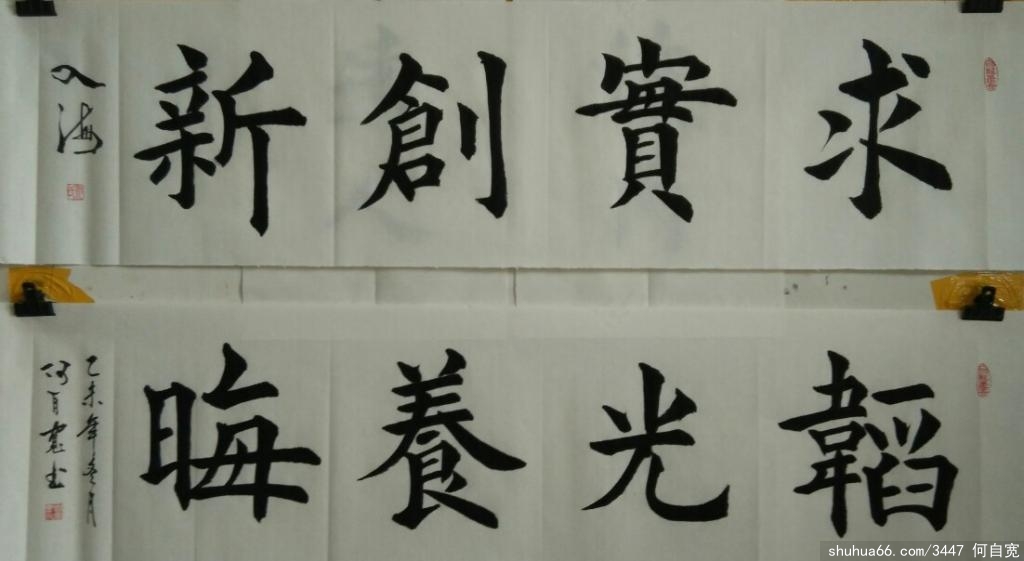 求實創新
入海
韜光養晦
乙未年冬月
何自寬書
shuhua66.com/3447 何自宽